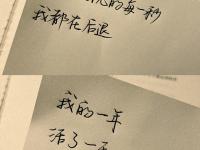 的每一秒
我都在后退
我的一年
活了一